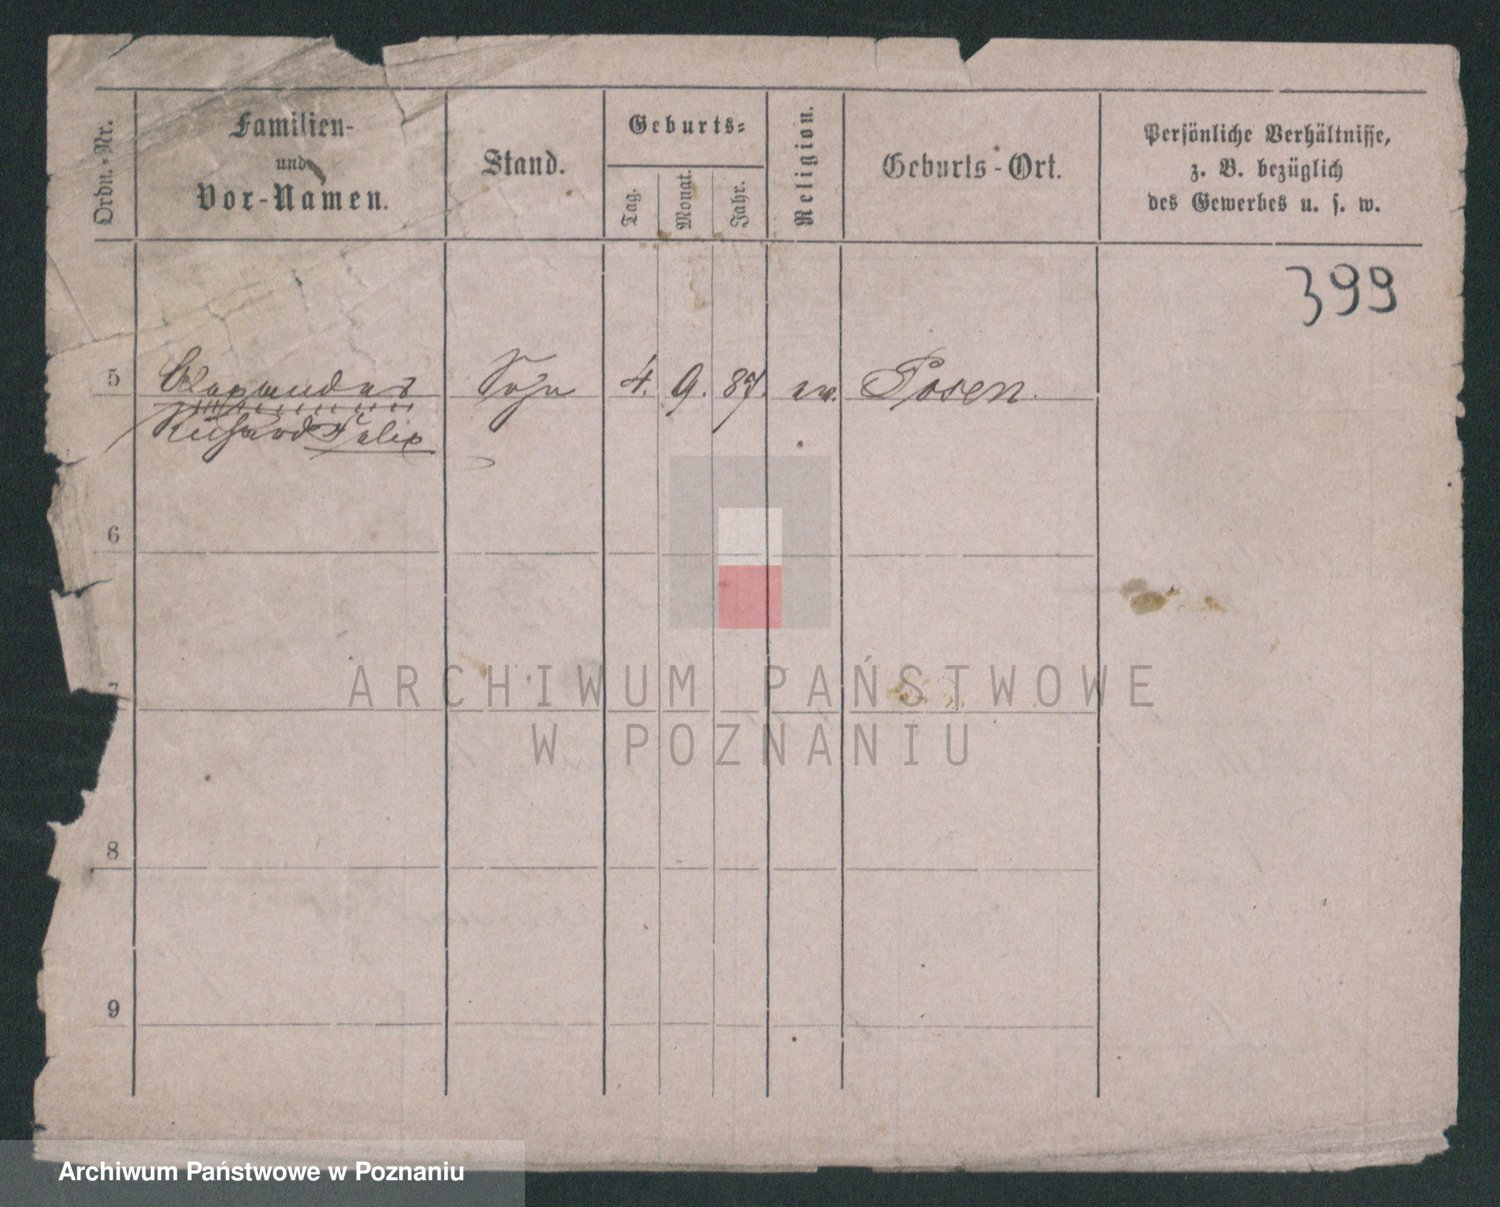 Ordn.-Nr.
Familien-
und
Vor-Namen.
Stand.
Geburts-
Tag.
Monat.
Jahr.
Religion.
Geburts-Ort.
Persönliche Verhältnisse,
z. B. bezüglich
des Gewerbes u. s. w.
399
5 Alexander Sohn 4. 9. 87. ev. Posen.
Richard Felix
6
7
8
9
ARCHIWUM PAŃSTWOWE
W POZNANIU
Archiwum Państwowe w Poznaniu